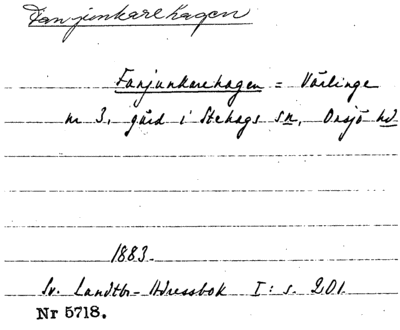 Fanjunkarehagen
Fanjunkarehagen = Värlinge
nr 3, gård i Stehags sn, Onsjö hd
1883.
Sv. Landtbr-Adressbok I: s. 201.
Nr 5718.